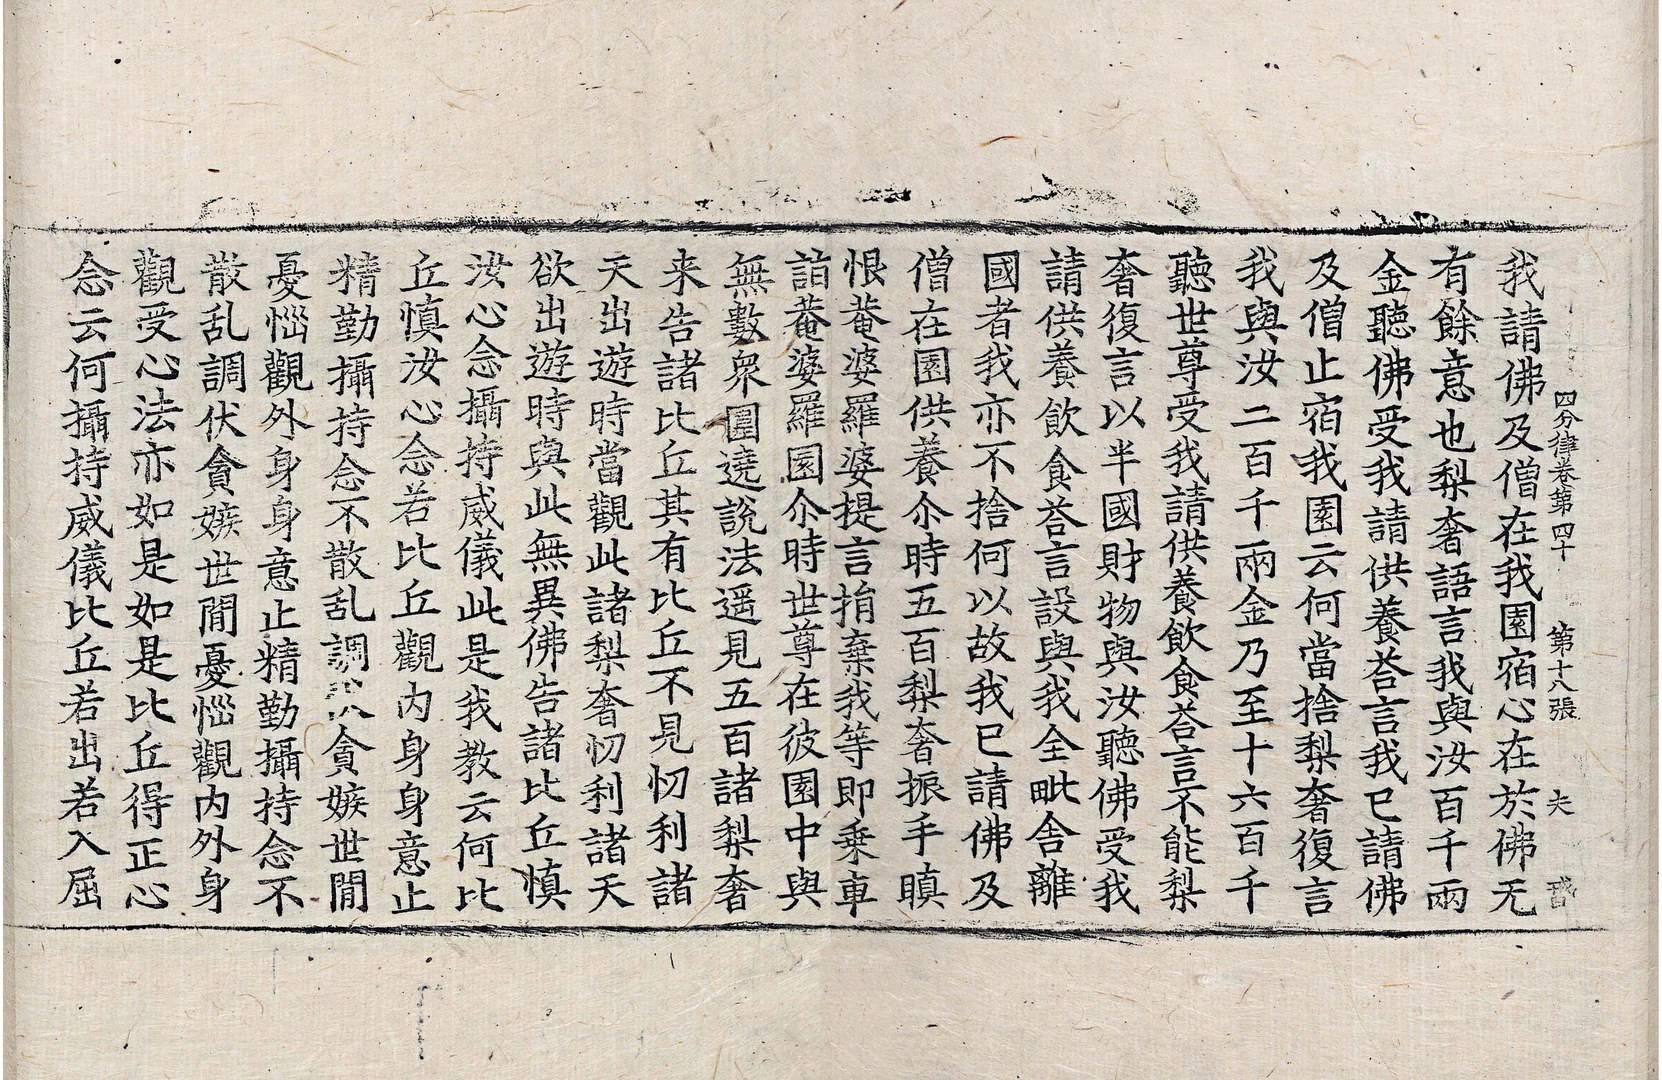 四分律卷第四十 第十八張 夫
我請佛及僧在我園宿心在於佛无
有餘意也梨奢語言我與汝百千兩
金聽佛受我請供養荅言我已請佛
及僧止宿我園云何當捨梨奢復言
我與汝二百千兩金乃至十六百千
聽世尊受我請供養飲食荅言不能梨
奢復言以半國財物與汝聽佛受我
請供養飲食荅言設與我全毗舍離
國者我亦不捨何以故我已請佛及
僧在園供養尒時五百梨奢振手瞋
恨菴婆羅婆提言捐棄我等即乗車
詣菴婆羅園尒時世尊在彼園中與
無數衆圍遶說法遥見五百諸梨奢
来告諸比丘其有比丘不見忉利諸
天出遊時當觀此諸梨奢忉利諸天
欲出遊時與此無異佛告諸比丘慎
汝心念攝持威儀此是我教云何比
丘慎汝心念若比丘觀内身身意止
精勤攝持念不散乱調貪嫉世閒
憂惱觀外身身意止精勤攝持念不
散乱調伏貪嫉世閒憂惱觀内外身
觀受心法亦如是如是比丘得正心
念云何攝持威儀比丘若出若入屈